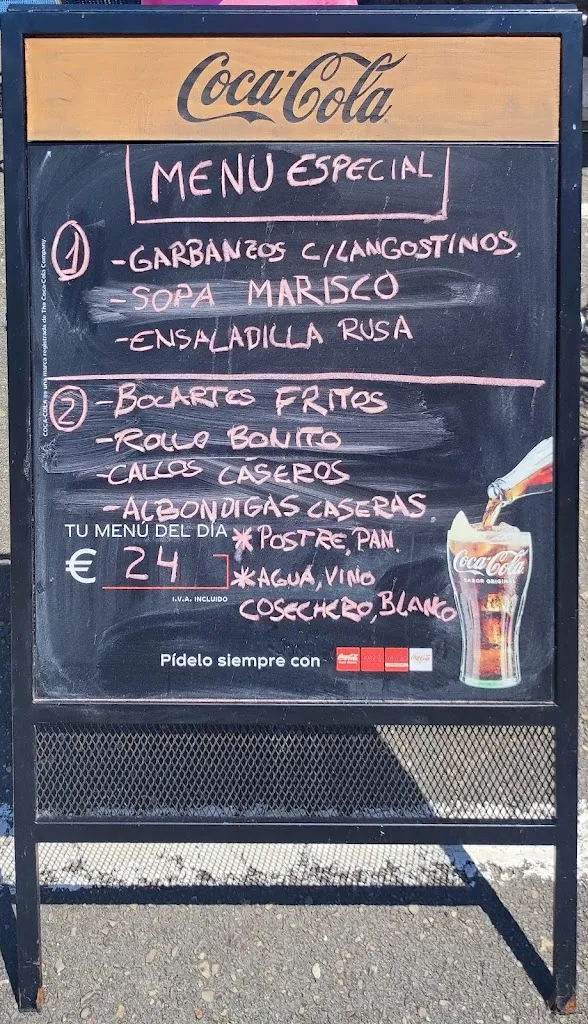 Coca-Cola
MENU ESPECIAL
1 -GARBANZOS C/LANGOSTINOS
-SOPA MARISCO
-ENSALADILLA RUSA
2 -BOCARTES FRITOS
-ROLLO BONITO
-CALLOS CASEROS
-ALBONDIGAS CASERAS
TU MENÚ DEL DÍA
€ 24
I.V.A. INCLUIDO
*POSTRE, PAN.
*AGUA, VINO
COSECHERO, BLANCO
Coca-Cola
SABOR ORIGINAL
Pídelo siempre con
COCA-COLA es una marca registrada de The Coca-Cola Company.